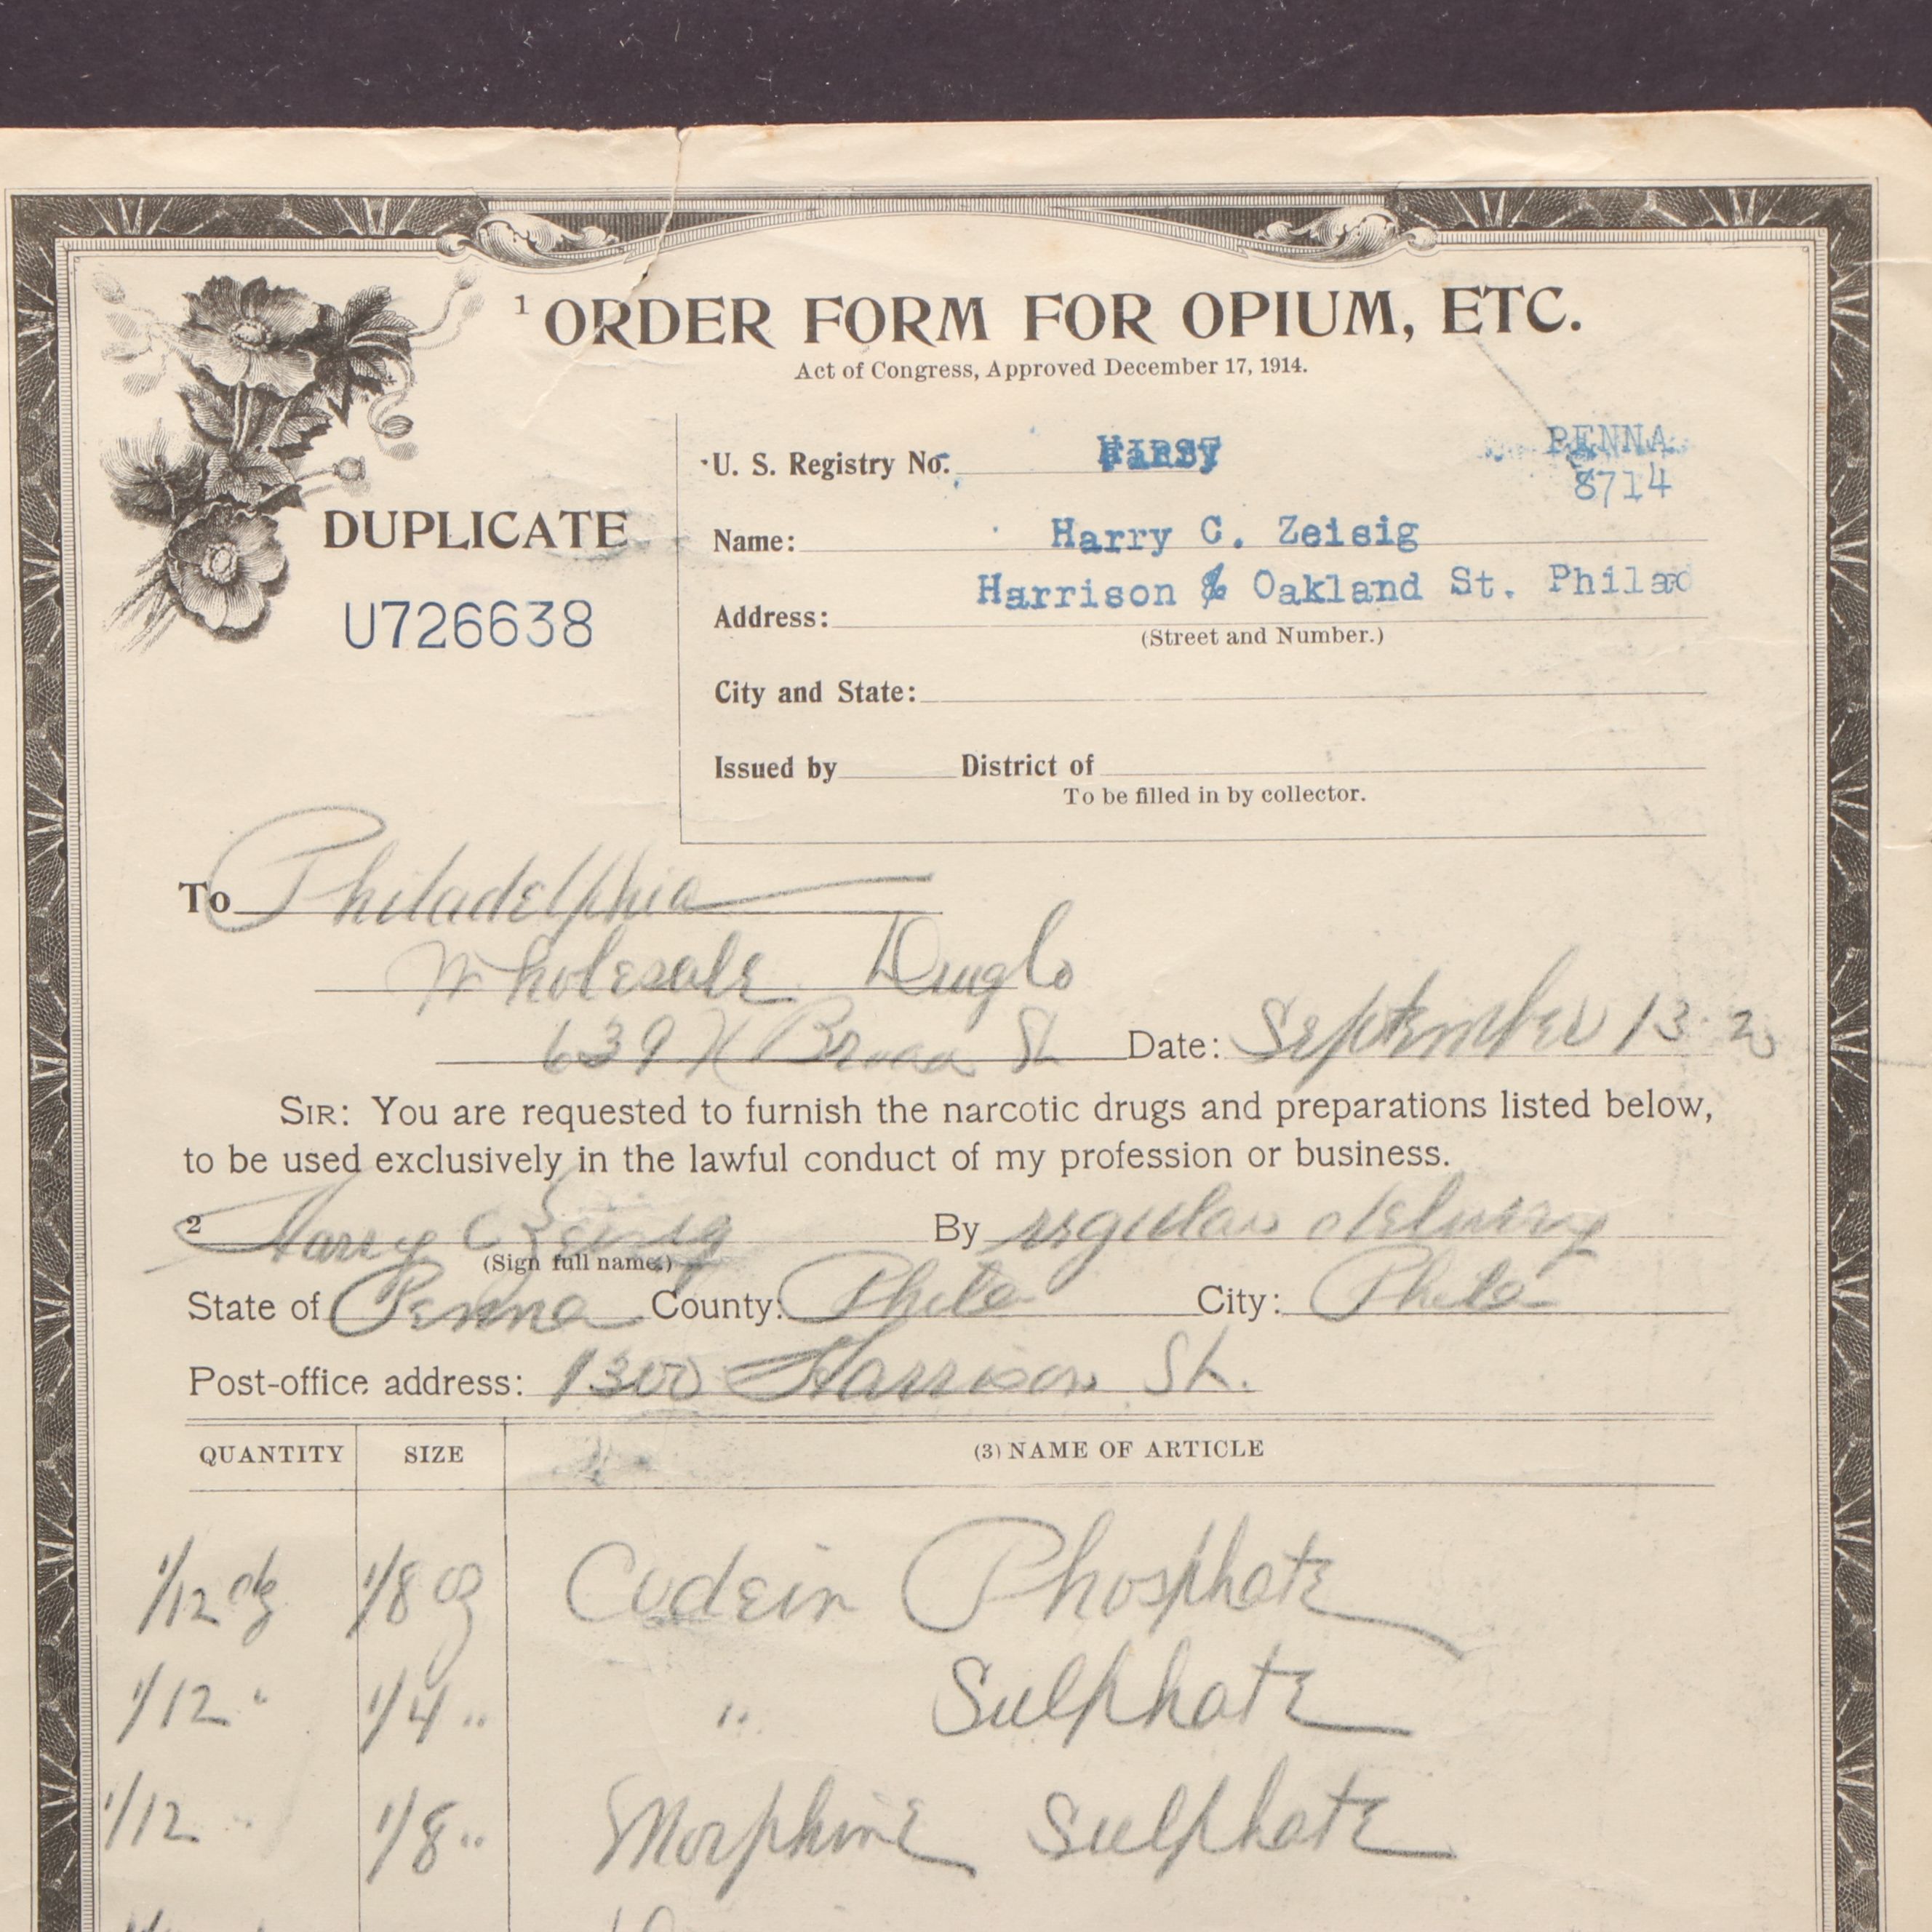 1 ORDER FORM FOR OPIUM, ETC.
Act of Congress, Approved December 17, 1914.
DUPLICATE
U726638
U. S. Registry No.
PENNA.
8714
Name: Harry C. Zeisig
Address: Harrison & Oakland St. Philad
(Street and Number.)
City and State:
Issued by District of
To be filled in by collector.
To Philadelphia
Wholesale Drug Co
639 N Broad St
Date: September 13 20
SIR: You are requested to furnish the narcotic drugs and preparations listed below,
to be used exclusively in the lawful conduct of my profession or business.
2 Harry C Zeisig By regular delivery
(Sign full name.)
State of Penna County: Phila City: Phila
Post-office address: 1300 Harrison St.
QUANTITY SIZE (3) NAME OF ARTICLE
1/12 dz 1/8 oz Codein Phosphate
1/12 " 1/4 " " Sulphate
1/12 " 1/8 " Morphine Sulphate